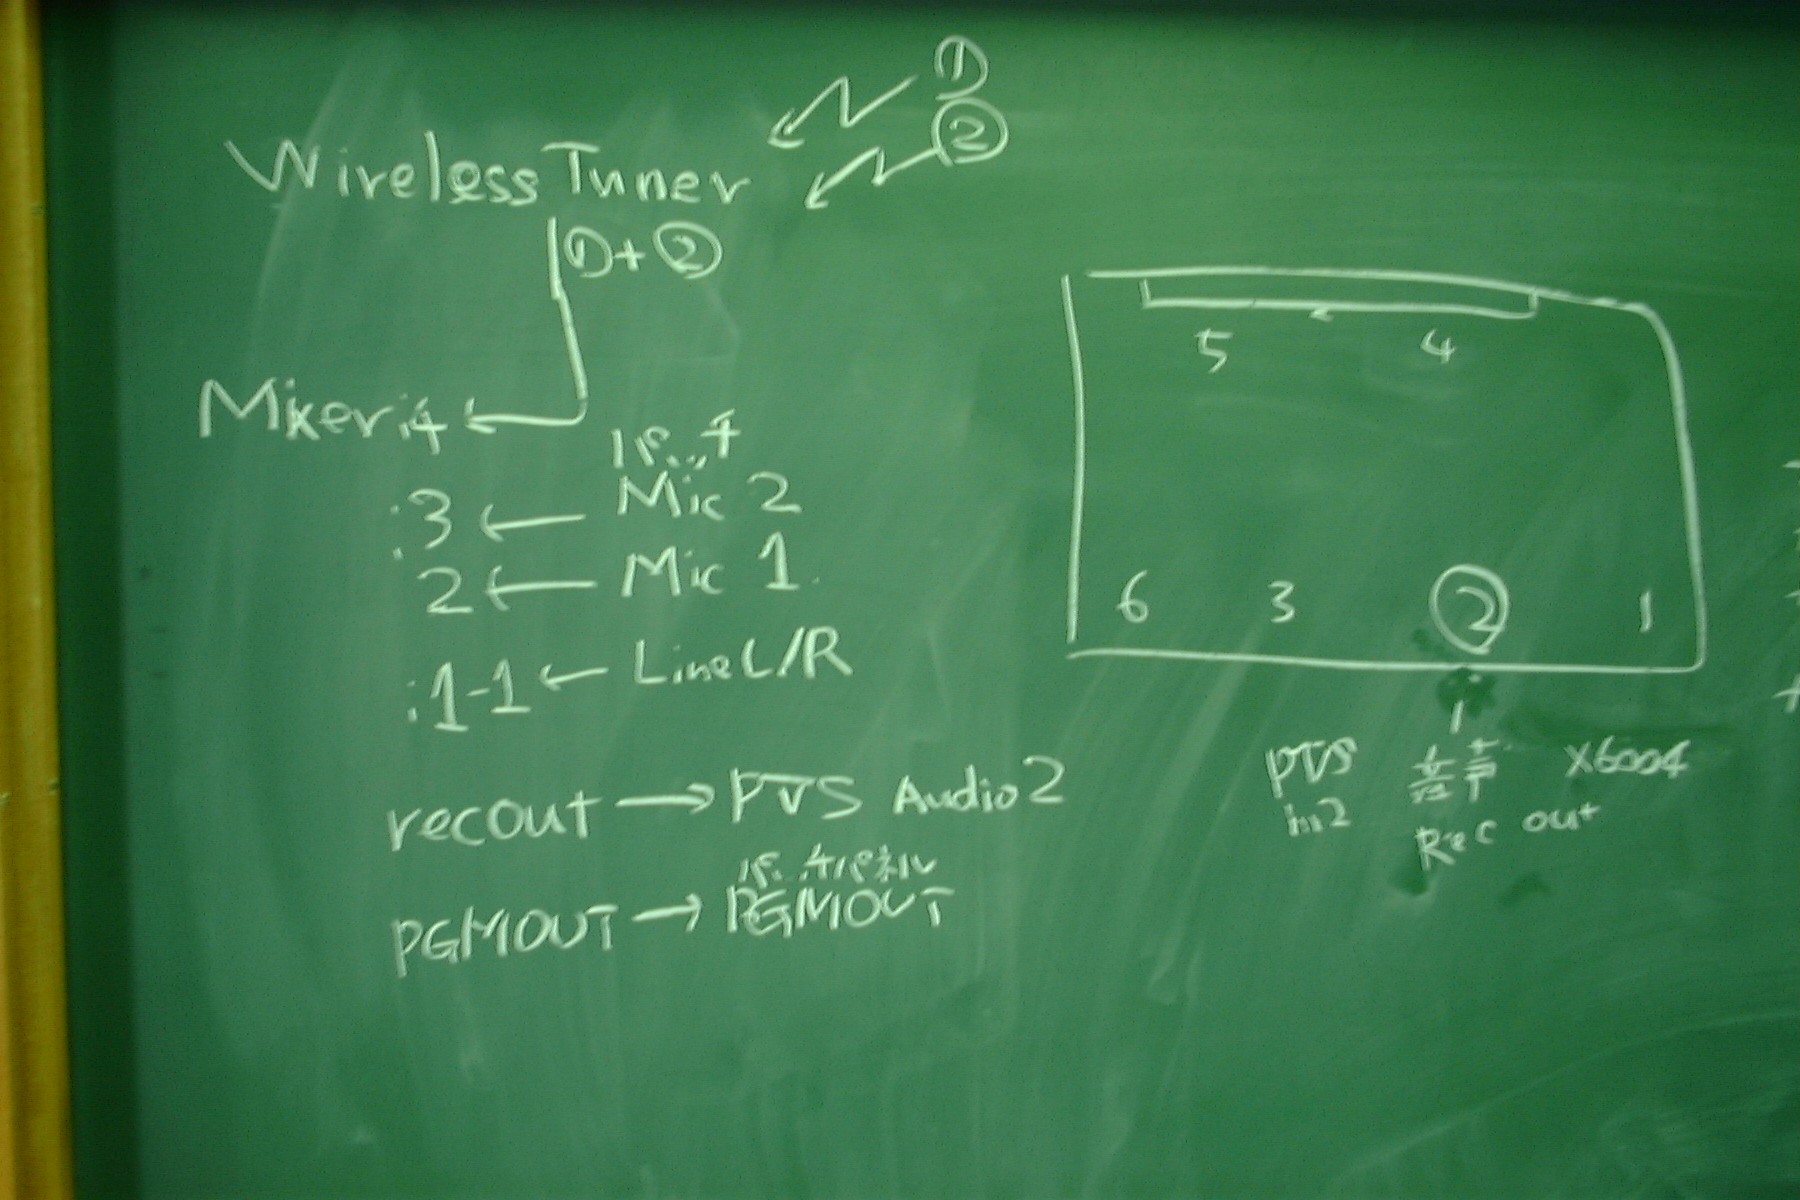 ①
②
Wireless Tuner
①+②
Mixer:4
:3 ← Mic 2
2 ← Mic 1
:1-1 ← Line L/R
recout → PVS Audio2
PGMOUT → PGMOUT
5 4
6 3 ② 1
PVS 音声 X6004
in2 Rec out